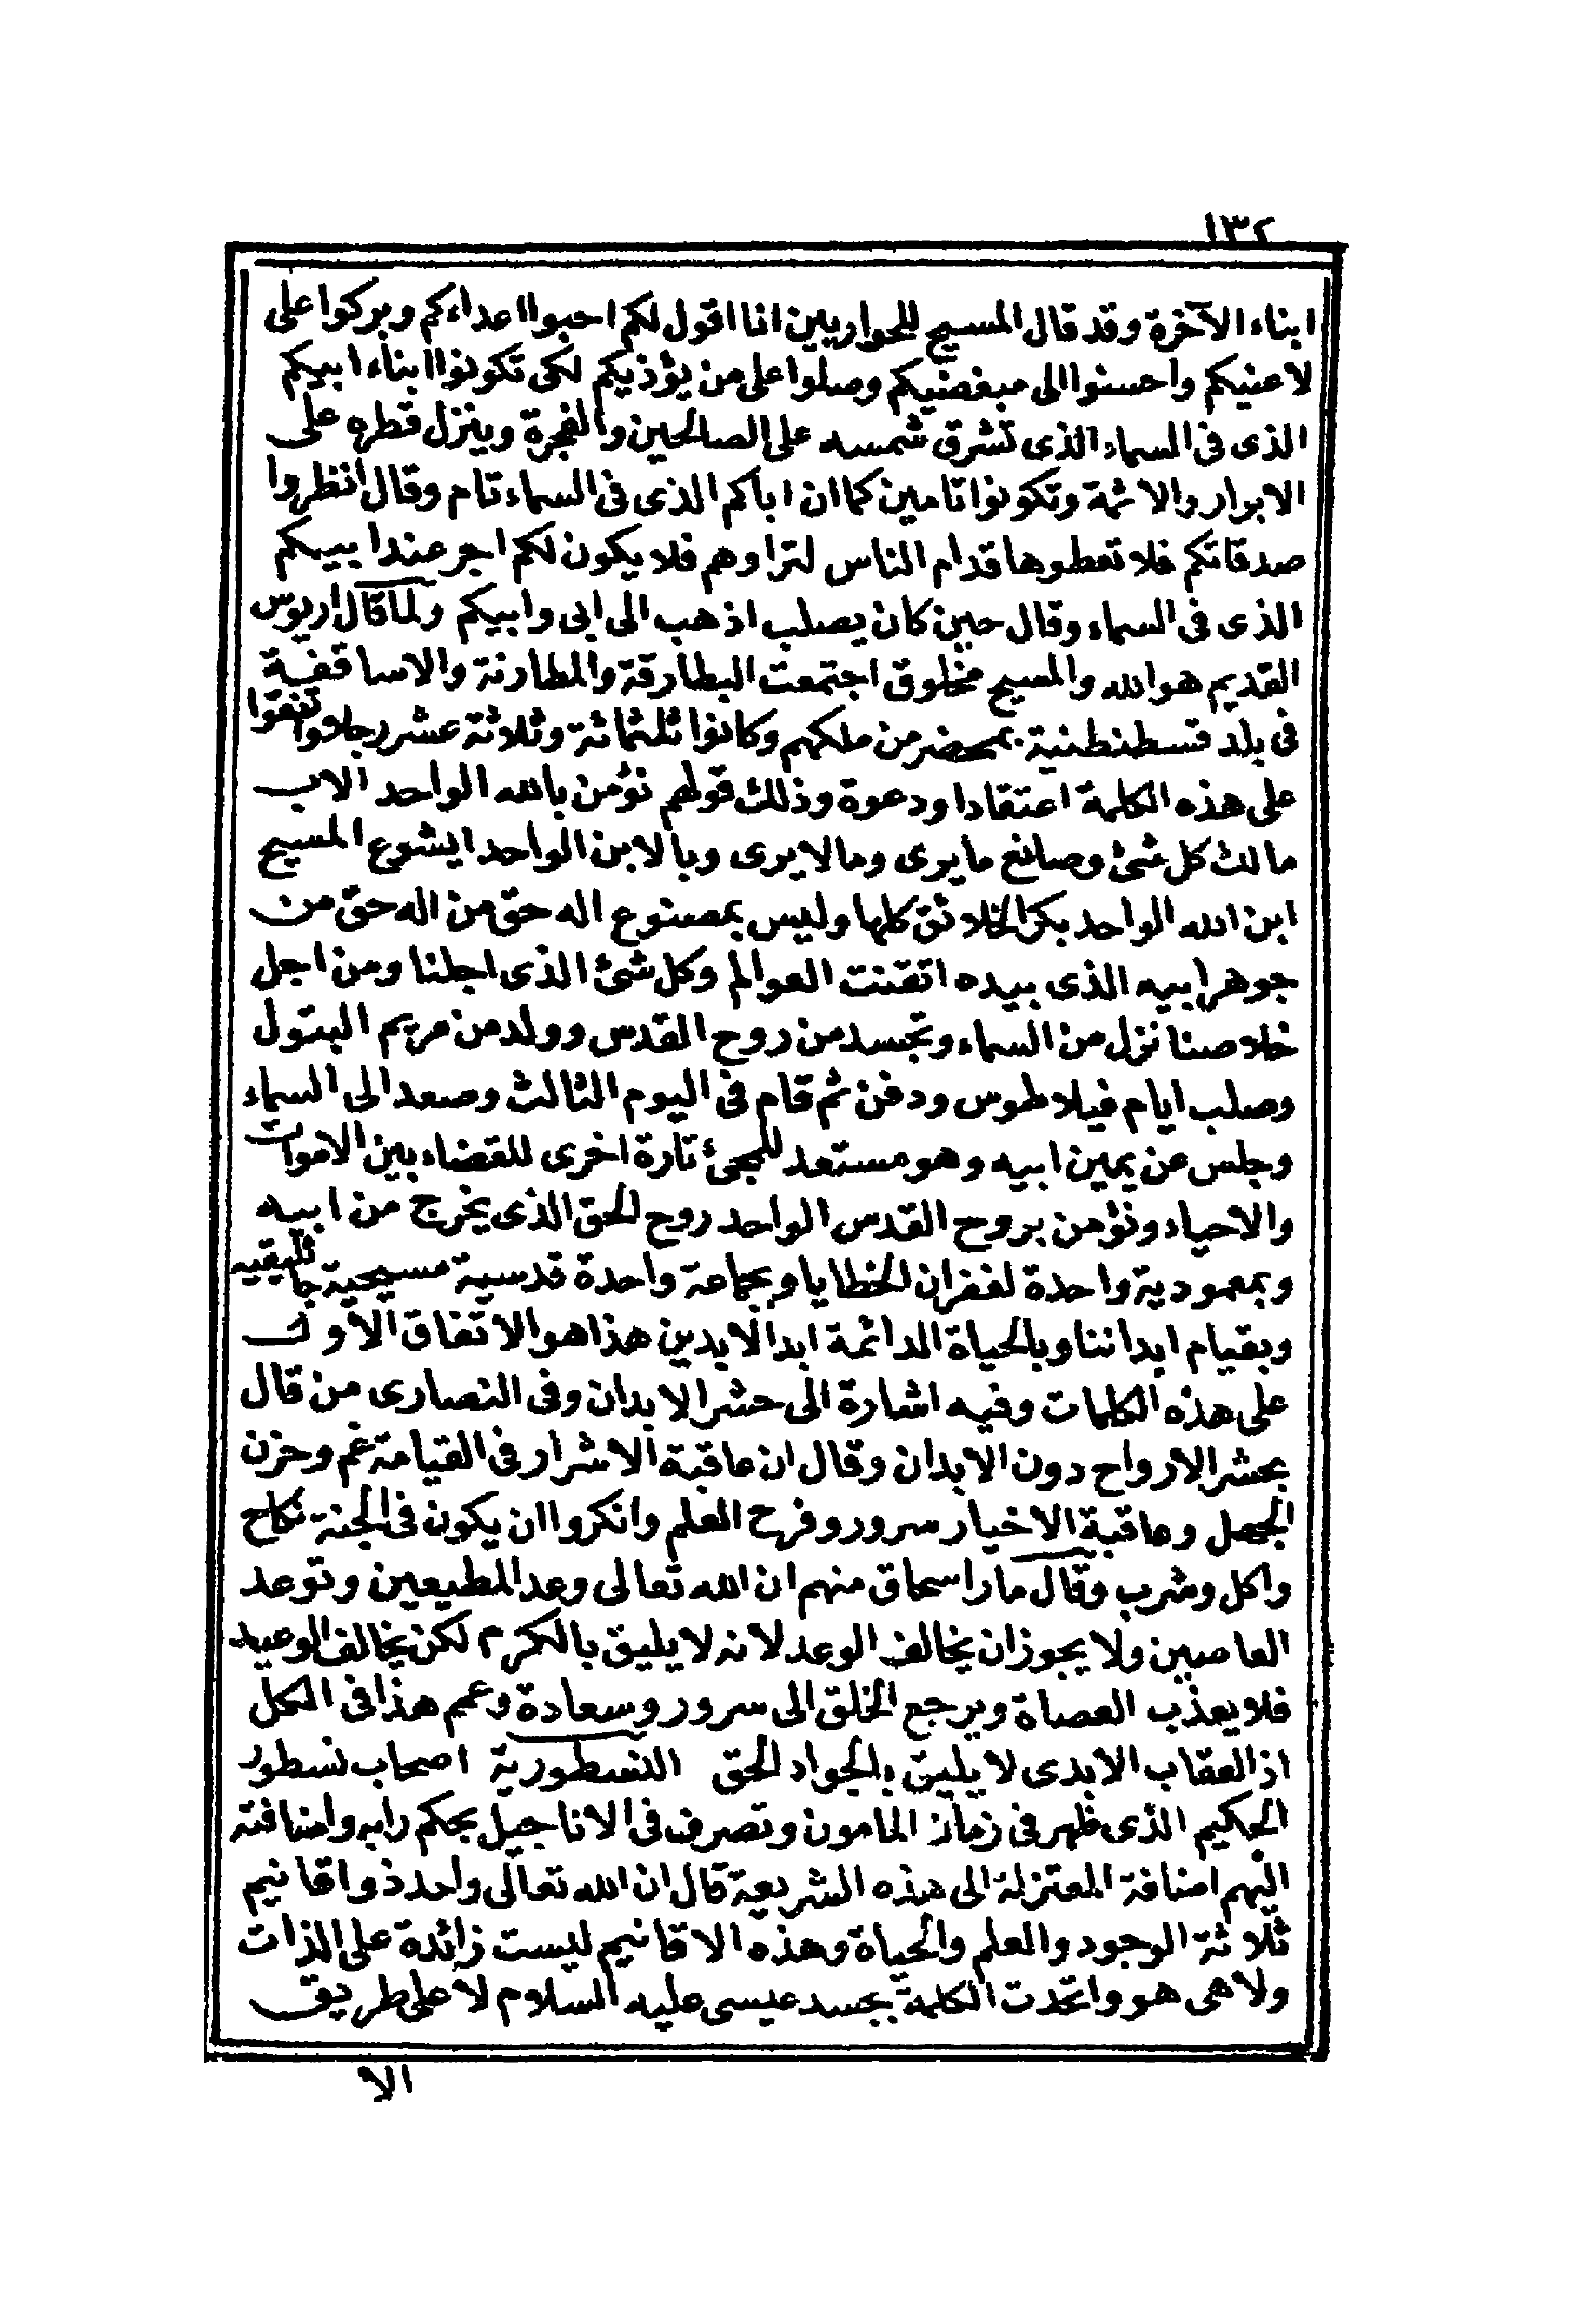 ١٣٢
ابناء الآخرة وقد قال المسيح للحواريين انا اقول لكم احبوا اعداءكم وبركوا على
لاعنيكم واحسنوا الى مبغضيكم وصلوا على من يؤذيكم لكى تكونوا ابناء ابيكم
الذى فى السماء الذى تشرق شمسه على الصالحين والفجرة وينزل قطره على
الابرار والاثمة وتكونوا تامين كما ان اباكم الذى فى السماء تام وقال انظروا
صدقاتكم فلا تعطوها قدام الناس لتراوهم فلا يكون لكم اجر عند ابيكم
الذى فى السماء وقال حين كان يصلب اذهب الى ابى وابيكم ولما قال اريوس
القديم هو الله والمسيح مخلوق اجتمعت البطارقة والمطارنة والاساقفة
فى بلد قسطنطنية بمحضر من ملكهم وكانوا ثلثمائة وثلاثة عشر رجلا واتفقوا
على هذه الكلمة اعتقادا ودعوة وذلك قولهم نؤمن بالله الواحد الاب
مالك كل شئ وصانع ما يرى وما لا يرى وبالابن الواحد ايشوع المسيح
ابن الله الواحد بكر الخلائق كلها وليس بمصنوع اله حق من اله حق من
جوهر ابيه الذى بيده اتقنت العوالم وكل شئ الذى اجلنا ومن اجل
خلاصنا نزل من السماء وتجسد من روح القدس وولد من مريم البتول
وصلب ايام فيلاطوس ودفن ثم قام فى اليوم الثالث وصعد الى السماء
وجلس عن يمين ابيه وهو مستعد للمجئ تارة اخرى للقضاء بين الاموات
والاحياء ونؤمن بروح القدس الواحد روح الحق الذى يخرج من ابيه
وبمعمودية واحدة لغفران الخطايا وبجماعة واحدة قدسية مسيحية جاثليقيه
وبقيام ابداننا وبالحياة الدائمة ابد الابدين هذا هو الاتفاق الاول
على هذه الكلمات وفيه اشارة الى حشر الابدان وفى النصارى من قال
بحشر الارواح دون الابدان وقال ان عاقبة الاشرار فى القيامة غم وحزن
الجهل وعاقبة الاخيار سرور وفرح العلم وانكروا ان يكون فى الجنة نكاح
واكل وشرب وقال مار اسحاق منهم ان الله تعالى وعد المطيعين وتوعد
العاصيين ولا يجوز ان يخالف الوعد لانه لا يليق بالكريم لكن يخالف الوعيد
فلا يعذب العصاة ويرجع الخلق الى سرور وسعادة وعمم هذا فى الكل
اذ العقاب الابدى لا يليق بالجواد الحق النسطورية اصحاب نسطور
الحكيم الذى ظهر فى زمان المامون وتصرف فى الاناجيل بحكم رايه واضافته
اليهم اضافة المعتزلة الى هذه الشريعة قال ان الله تعالى واحد ذو اقانيم
ثلاثة الوجود والعلم والحياة وهذه الاقانيم ليست زائدة على الذات
ولا هى هو واتحدت الكلمة بجسد عيسى عليه السلام لا على طريق
الا